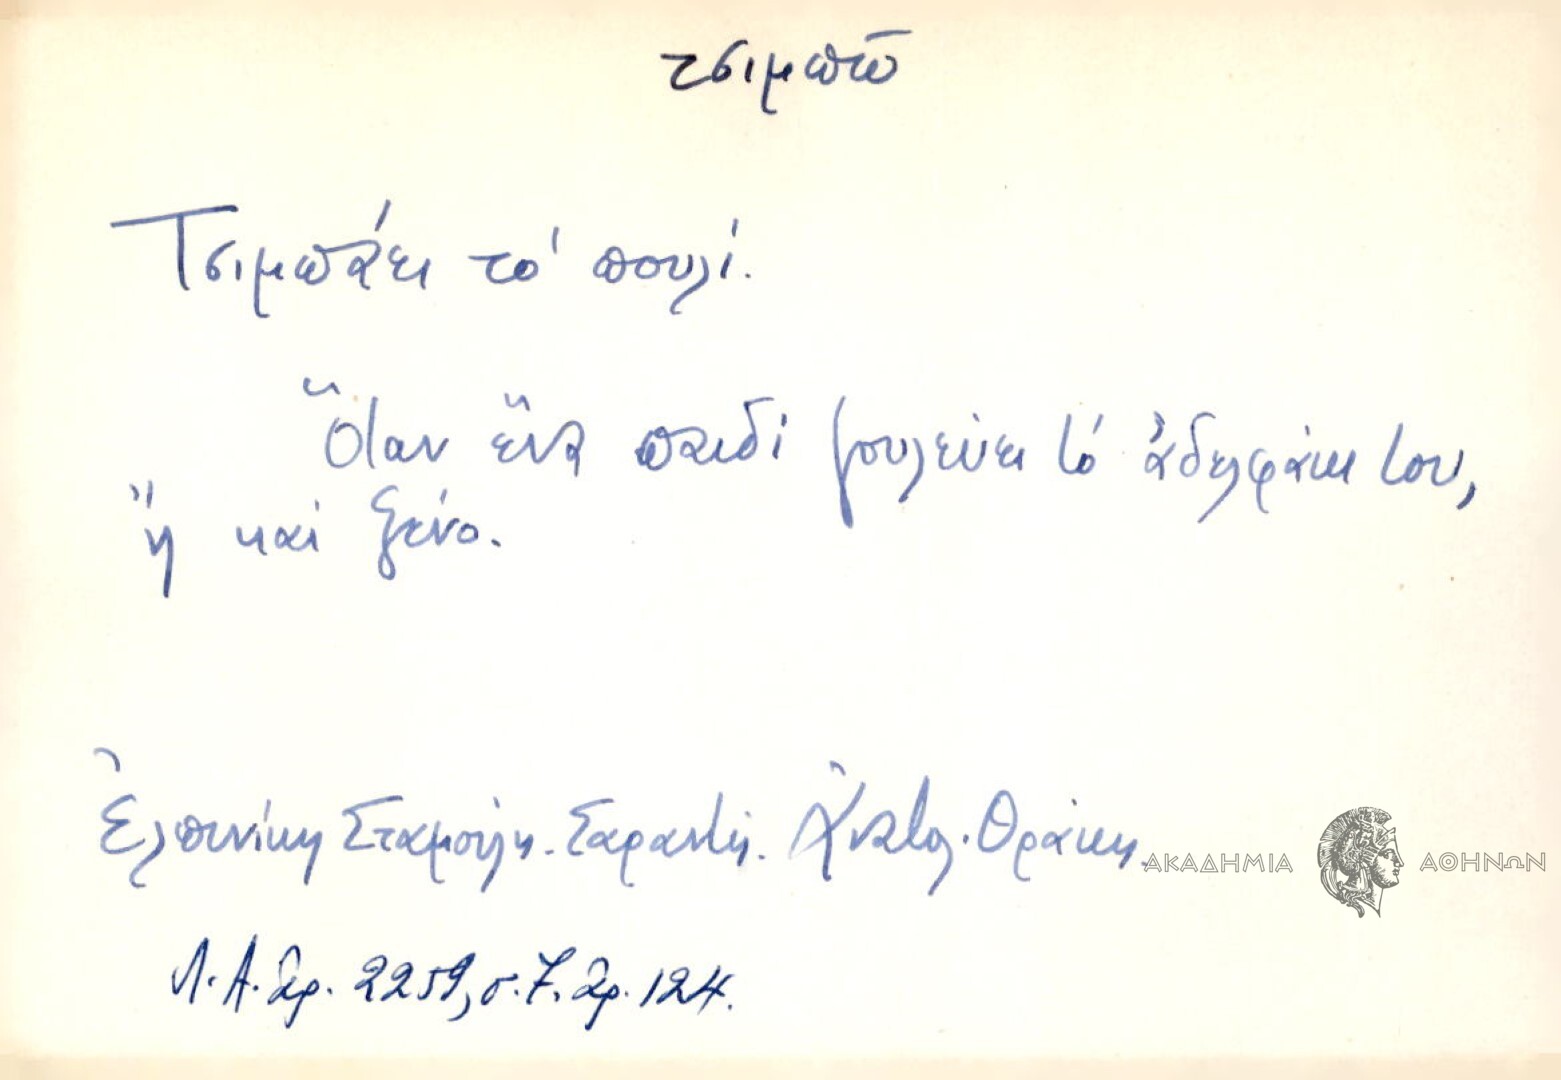 τσιμπῶ
Τσιμπάει τό πουλί.
Ὅταν ἕνα παιδί ζουλεύει τό ἀδελφάκι του,
ἤ καί ξένο.
Ἐλπινίκη Σταμούλη-Σαραντῆ. Ἀνατολ. Θράκη.
ΑΚΑΔΗΜΙΑ ΑΘΗΝΩΝ
Λ.Α. ἀρ. 2259, σ. 7. ἀρ. 124.